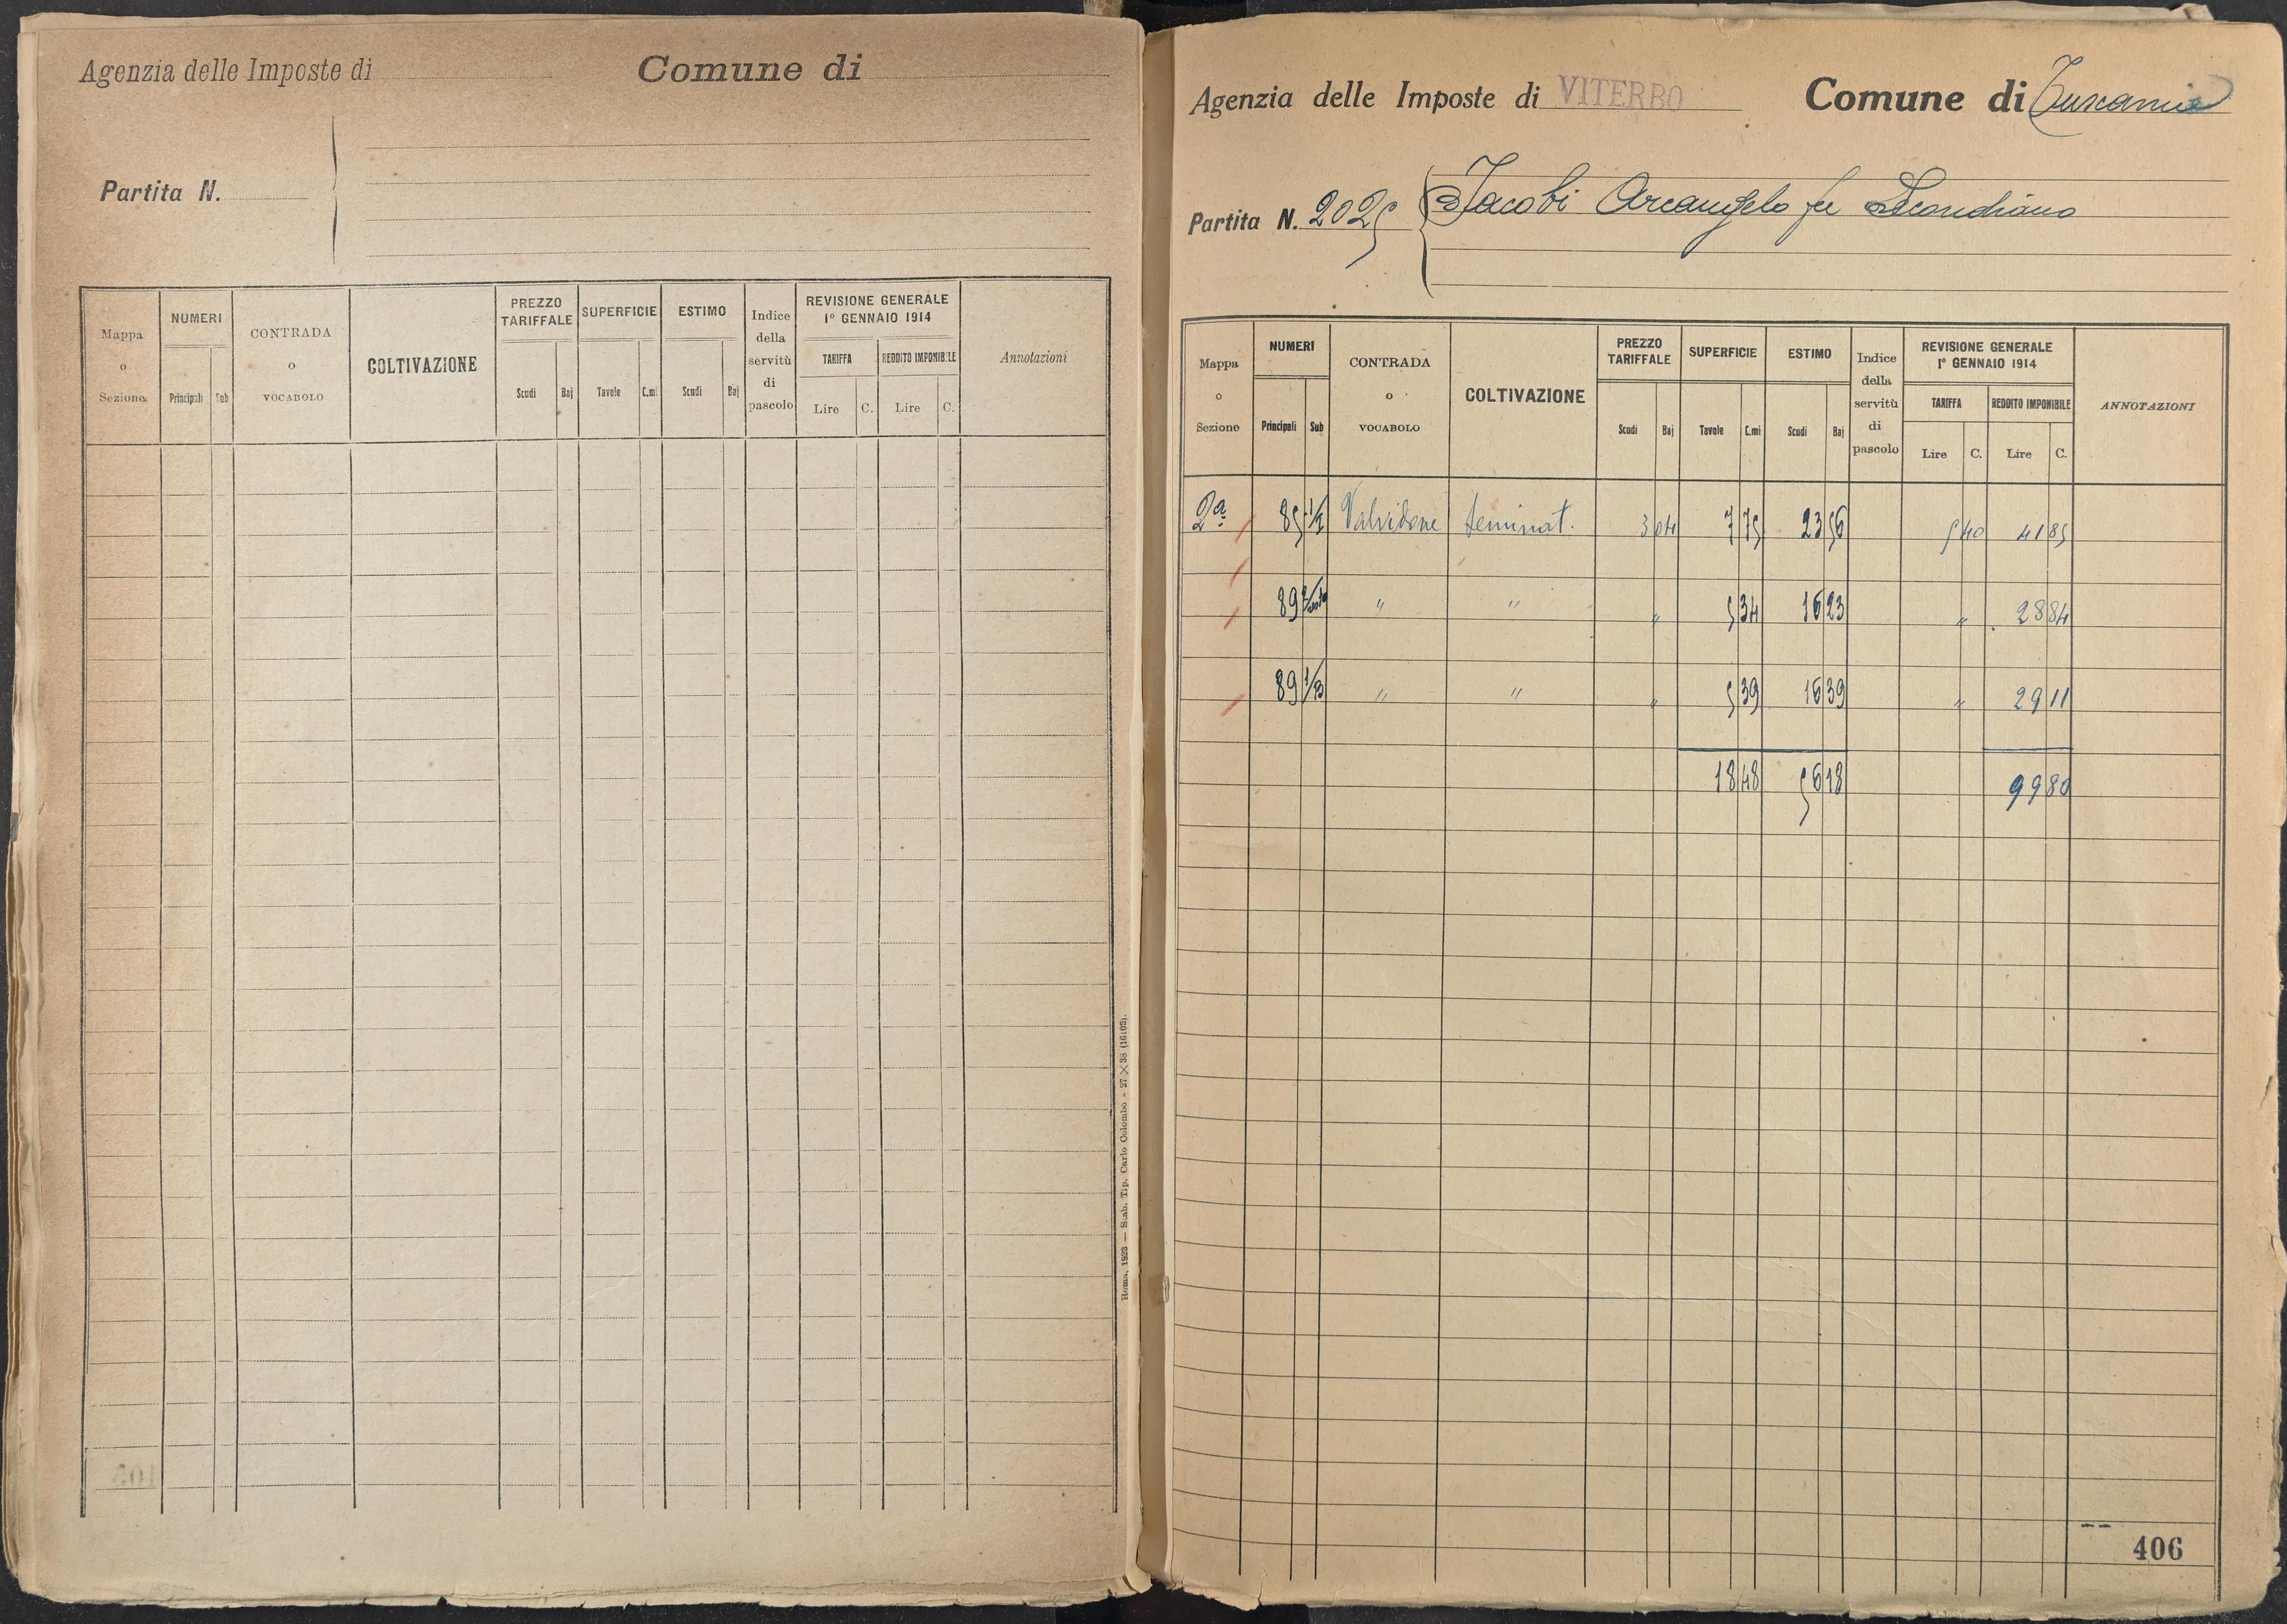 Agenzia delle Imposte di Comune di
Partita N.
Mappa o Sezione NUMERI Principali Sub CONTRADA o VOCABOLO COLTIVAZIONE PREZZO TARIFFALE Scudi Baj SUPERFICIE Tavole C.mi ESTIMO Scudi Baj Indice della servitù di pascolo REVISIONE GENERALE 1° GENNAIO 1914 TARIFFA Lire C. REDDITO IMPONIBILE Lire C. Annotazioni
Roma, 1923 — Stab. Tip. Carlo Colombo - 27 × 38 (16103).
Agenzia delle Imposte di VITERBO Comune di Tuscania
Partita N. 2025 Iacobi Arcangelo fu Secondiano
Mappa o Sezione NUMERI Principali Sub CONTRADA o VOCABOLO COLTIVAZIONE PREZZO TARIFFALE Scudi Baj SUPERFICIE Tavole C.mi ESTIMO Scudi Baj Indice della servitù di pascolo REVISIONE GENERALE 1° GENNAIO 1914 TARIFFA Lire C. REDDITO IMPONIBILE Lire C. ANNOTAZIONI
2a 85 1/2 Valvidone seminat. 3 04 7 75 23 56 5 40 41 85
89 " " " 5 34 16 23 " 28 84
89 " " " 5 39 16 39 " 29 11
18 48 56 18 99 80
406